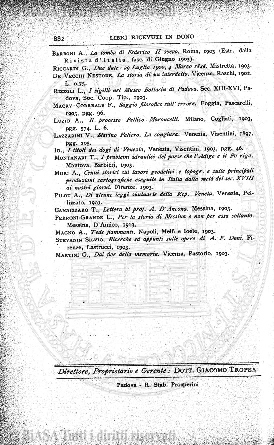 882 LIBRI RICEVUTI IN DONO
BERTONI A., La tomba di Federico II svevo, Roma, 1903 (Estr. dalla
Rivista d'Italia, fasc. di Giugno 1903).
RICCARDI G., Due date: 29 Luglio 1900, 4 Marzo 1848. Mistretta, 1903.
DE VECCHI NESTORE, La storia di un interdetto. Vicenza, Raschi, 1902.
L. 0.75.
RIZZOLI L., I sigilli nel Museo Bottacin di Padova. Sec. XIII-XVI, Pa-
dova, Soc. Coop. Tip., 1903.
MACRY-CORREALE F., Saggio filosofico sull'errore. Foggia, Pascarelli,
1903, pag. 96.
LUZIO A., Il processo Pellico Maroncelli. Milano, Cogliati, 1903,
pag. 574. L. 6.
LAZZARINI V., Marino Faliero. La congiura. Venezia, Visentini, 1897
pag. 205.
ID., I titoli dei dogi di Venezia, Venezia, Visentini, 1903, pag. 46.
MONTANARI T., I problemi idraulici del paese che l'Adige e il Po riga.
Mantova, Barbieri, 1903.
MORI A., Cenni storici sui lavori geodetici e topogr. e sulle principali
produzioni cartografiche eseguite in Italia dalla metà del sec. XVIII
ai nostri giorni. Firenze, 1903.
PILOT A., Di alcune leggi suntuarie della Rep. Veneta. Venezia, Pel-
lizzato, 1903.
CANNIZZARO T., Lettera al prof. A. D'Ancona. Messina, 1903.
PERRONI-GRANDE L., Per la storia di Messina e non per essa soltanto.
Messina, D'Amico, 1903.
MAGNO A., Tede fiammanti. Napoli, Melfi e Joele, 1903.
STEVANIN SILVIO, Ricerche ed appunti sulle opere di A. F. Doni. Fi-
renze, Lastrucci, 1903.
MARTINI G., Dal fior della memoria. Vicenza, Pastorio, 1903.
Direttore, Proprietario e Gerente: DOTT. GIACOMO TROPEA
Padova - R. Stab. Prosperini
BIASA Tutti i diritti riservati